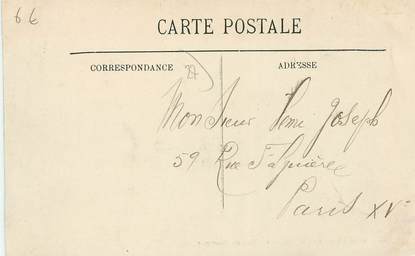 6 €
CARTE POSTALE
CORRESPONDANCE
27
ADRESSE
Monsieur Remi Joseph
59 Rue
Paris XVe